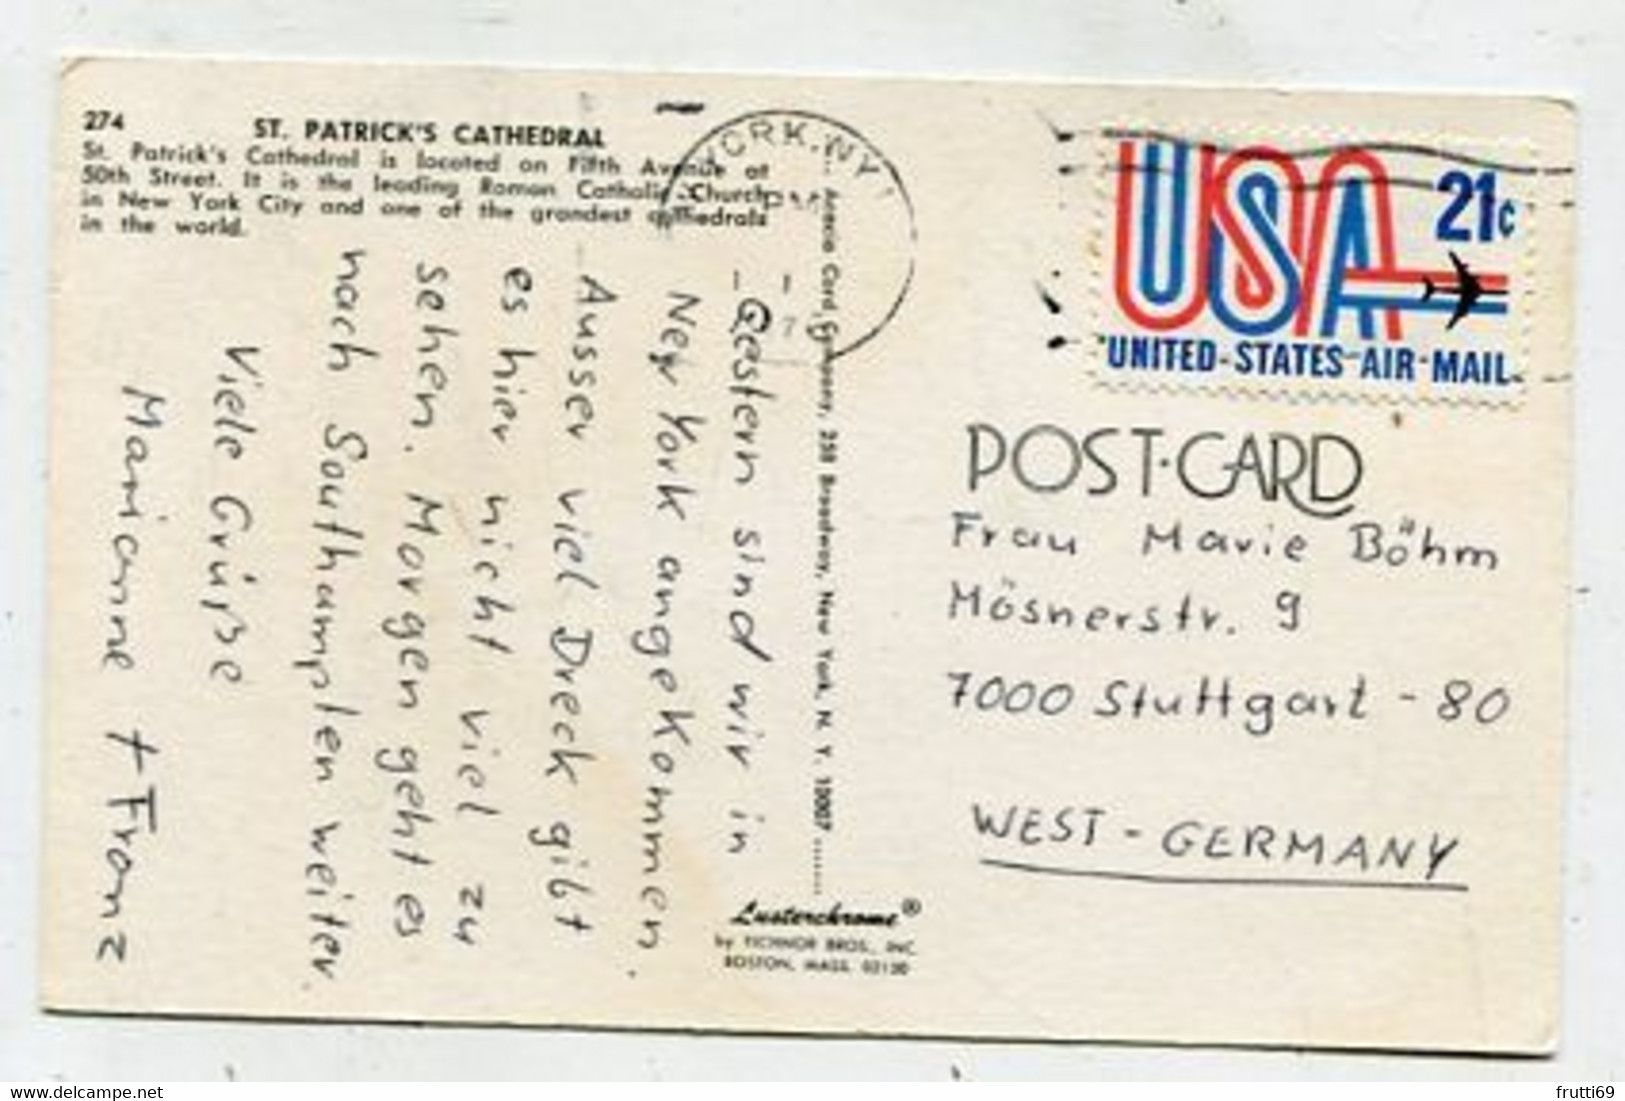 274
ST. PATRICK'S CATHEDRAL
St. Patrick's Cathedral is located on Fifth Avenue at
50th Street. It is the leading Roman Catholic Church
in New York City and one of the grandest cathedrals
in the world.
Gestern sind wir in
New York angekommen.
Ausser viel Dreck gibt
es hier nicht viel zu
sehen. Morgen geht es
noch Southampten weiter.
Viele Grüße
Marianne + Franz
Anexio Card Company, 258 Broadway, New York, N. Y. 10007
Lusterchrome®
by TICHNOR BROS., INC.
BOSTON, MASS. 02130
YORK, NY
PM
USA
21c
UNITED-STATES-AIR-MAIL
POST-CARD
Frau Marie Böhm
Mösnerstr. 9
7000 Stuttgart - 80
WEST-GERMANY
delcampe.net
frutti69